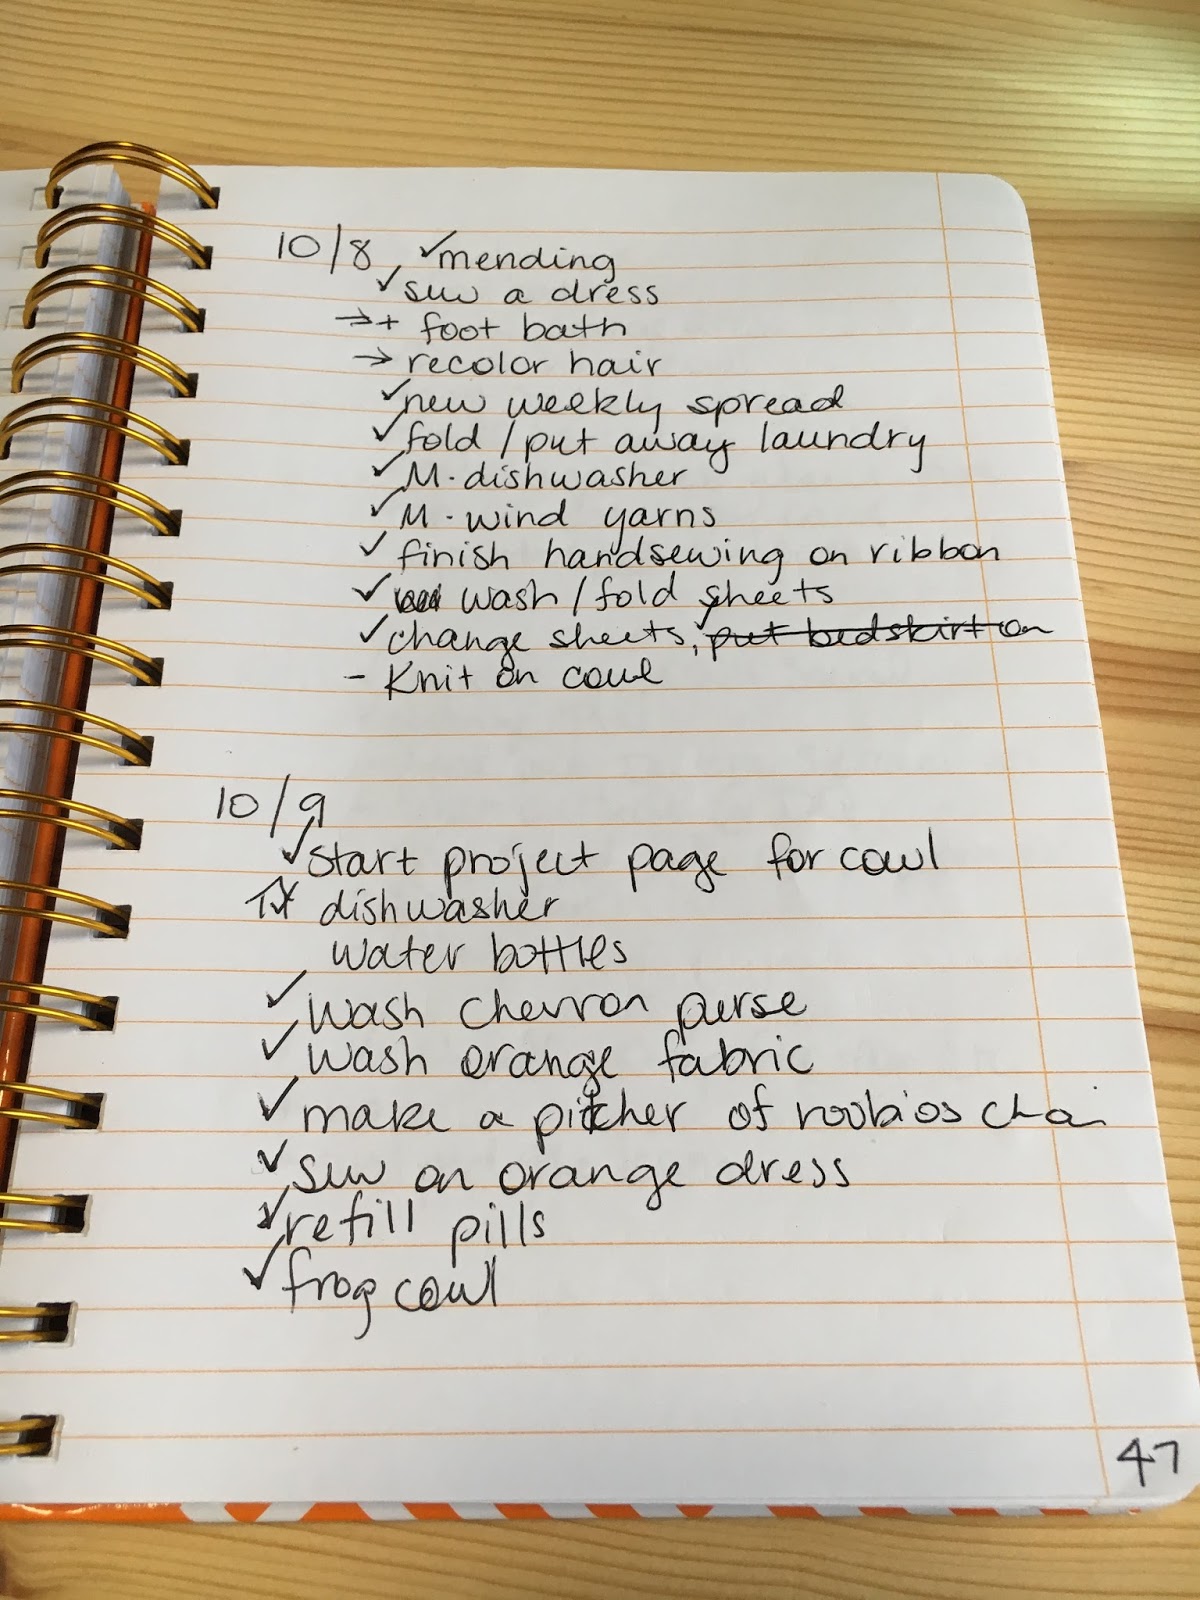 10/8 ✓mending
✓sew a dress
→+ foot bath
→ recolor hair
✓new weekly spread
✓fold/put away laundry
✓M. dishwasher
✓M. wind yarns
✓ finish handsewing on ribbon
✓ wash/fold sheets
✓change sheets, ✓put bedskirt on
- Knit on cowl
10/9
✓start project page for cowl
dishwasher
water bottles
✓wash chevron purse
✓wash orange fabric
✓make a pitcher of roobios chai
✓sew on orange dress
✓refill pills
✓frog cowl
47